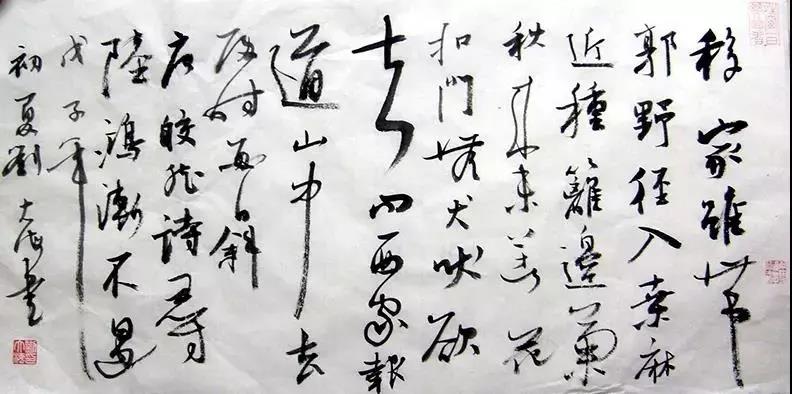 移家雖帶
郭野徑入桑麻
近種籬邊菊
秋來未著花
扣門無犬吠欲
去問西家報
道山中去
歸時每日斜
唐皎然詩尋
陸鴻漸不遇
戊子年
初夏劉大海書